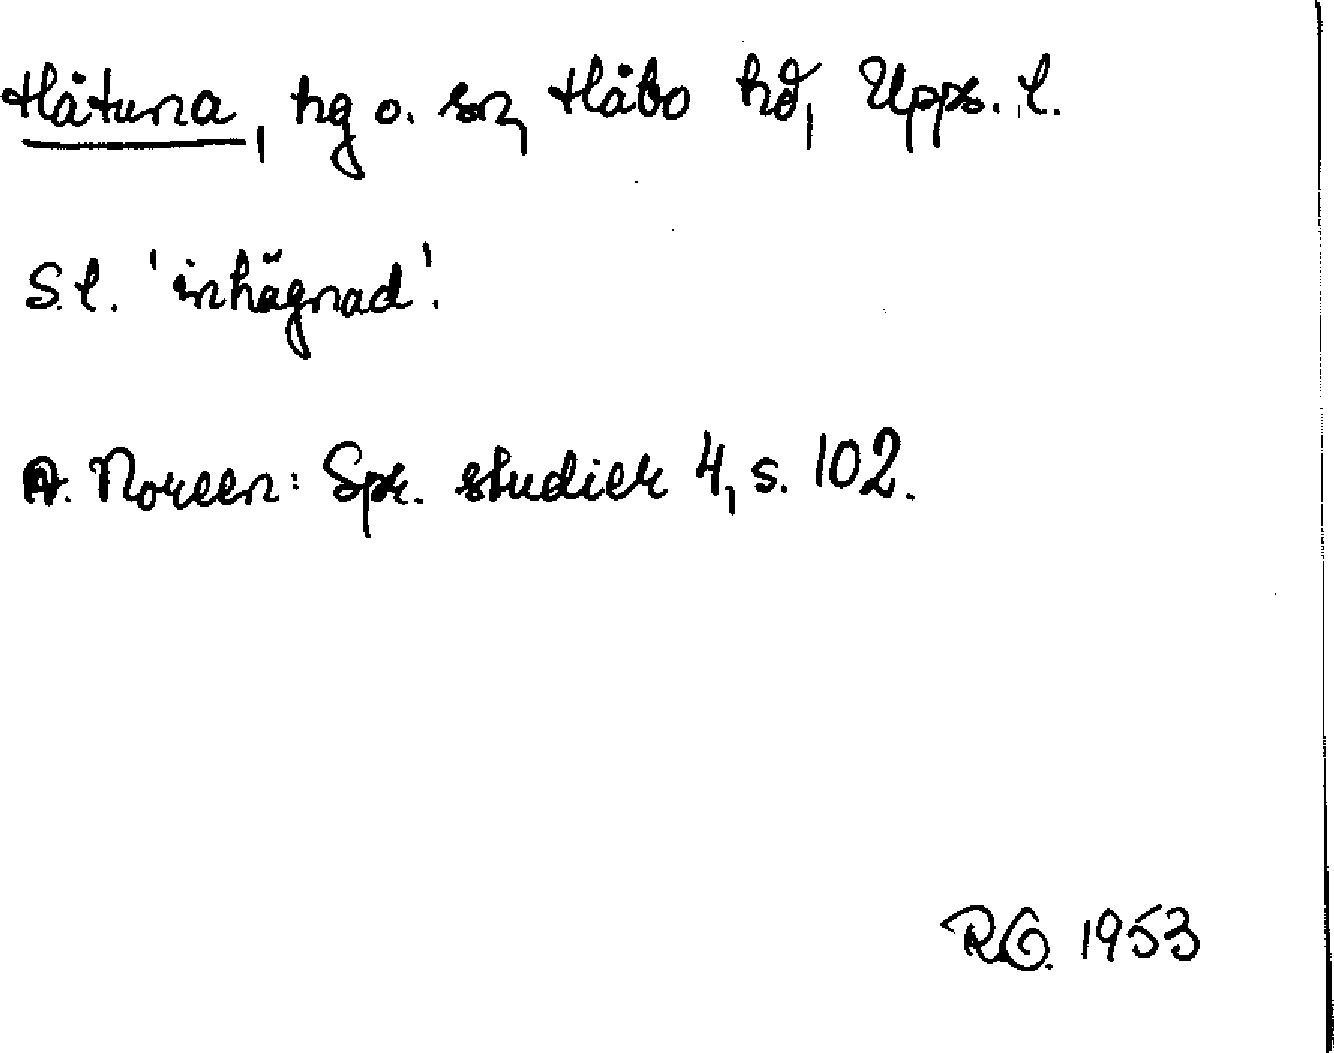 Håtuna, hg o. sn, Håbo hd, Upps. l.
S.l. 'inhägnad'.
A. Noreen: Spr. studier 4, s. 102.
R.G. 1953